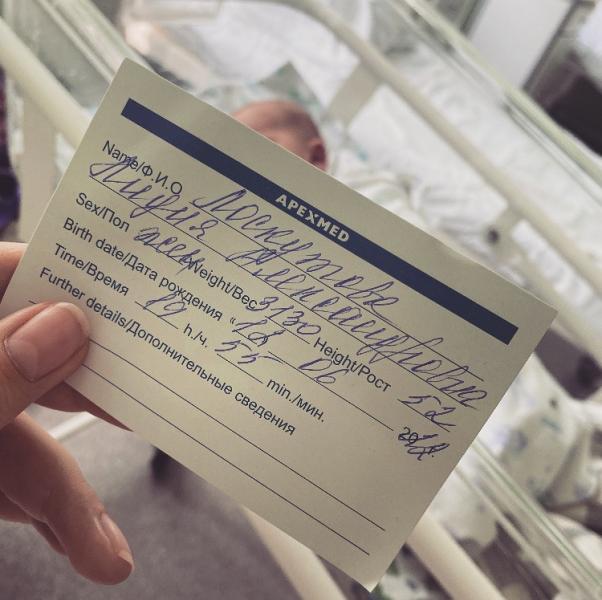 APEXMED
Name/Ф.И.О Лоскутова
Sex/Пол жен Weight/Вес 3130 Height/Рост 52
Birth date/Дата рождения “18” 06
Time/Время 19 h./ч. 55 min./мин.
Further details/Дополнительные сведения